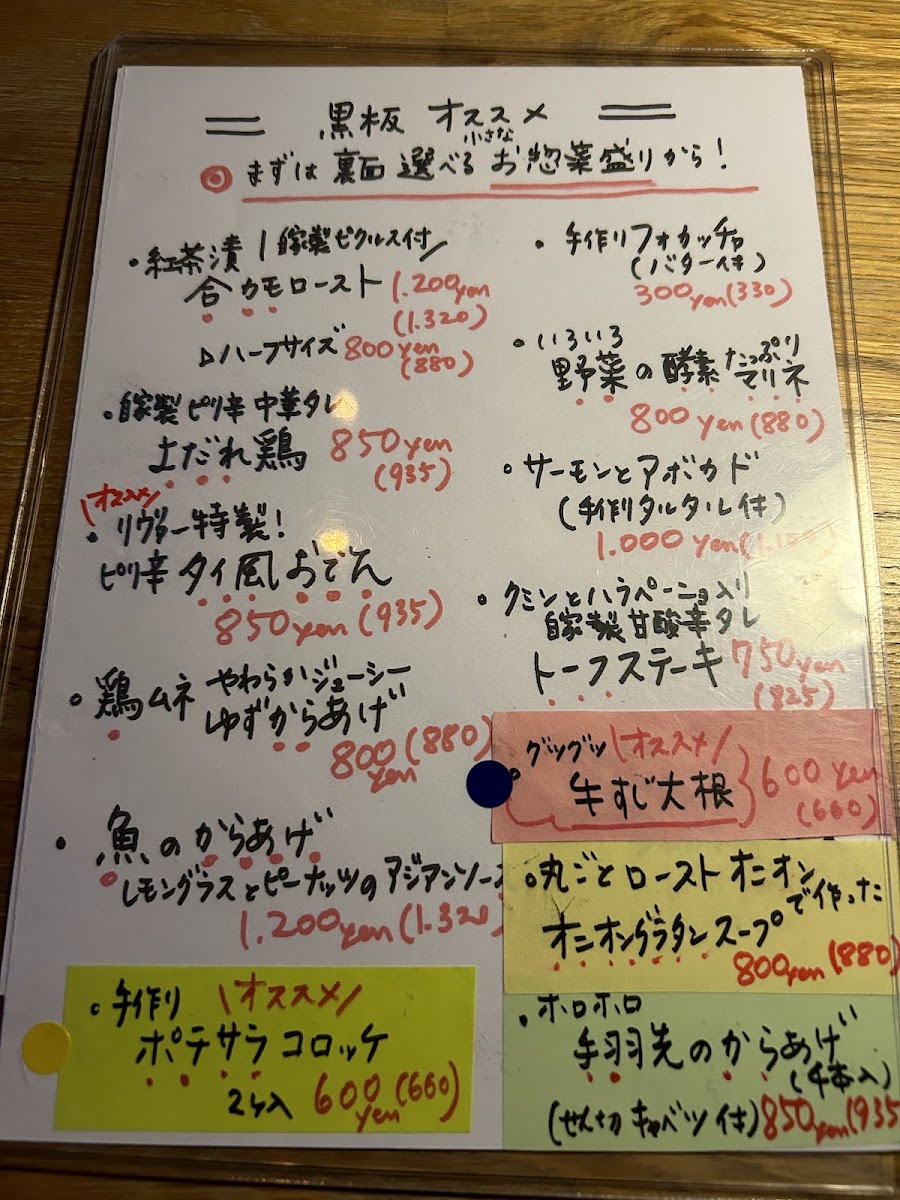 黒板 オススメ
◎ まずは 裏面 選べる 小さな お惣菜盛りから！
・紅茶漬 自家製ピクルス付
合カモロースト 1.200yen
(1.320)
▷ハーフサイズ 800yen
(880)
・自家製 ピリ辛 中華タレ
よだれ鶏 850yen
(935)
\オススメ/
・リヴァー特製！
ピリ辛 タイ風 おでん
850yen (935)
・鶏ムネ やわらかジューシー
ゆずからあげ
800yen (880)
・魚のからあげ
レモングラスとピーナッツのアジアンソース
1.200yen (1.320)
・手作り \オススメ/
ポテサラ コロッケ
2ケ入 600yen (660)
・手作りフォカッチャ
(バター付)
300yen (330)
・いろいろ
野菜の酵素たっぷりマリネ
800yen (880)
・サーモンとアボカド
(手作りタルタル付)
1.000yen (1.100)
・クミンとハラペーニョ入り
自家製 甘酸辛タレ
トーフステーキ 750yen
(825)
・グツグツ \オススメ/
牛すじ大根 600yen
(660)
・丸ごとローストオニオン
で作った
オニオングラタンスープ
800yen (880)
・ホロホロ
手羽先のからあげ
(4本入)
(せん切キャベツ付) 850yen (935